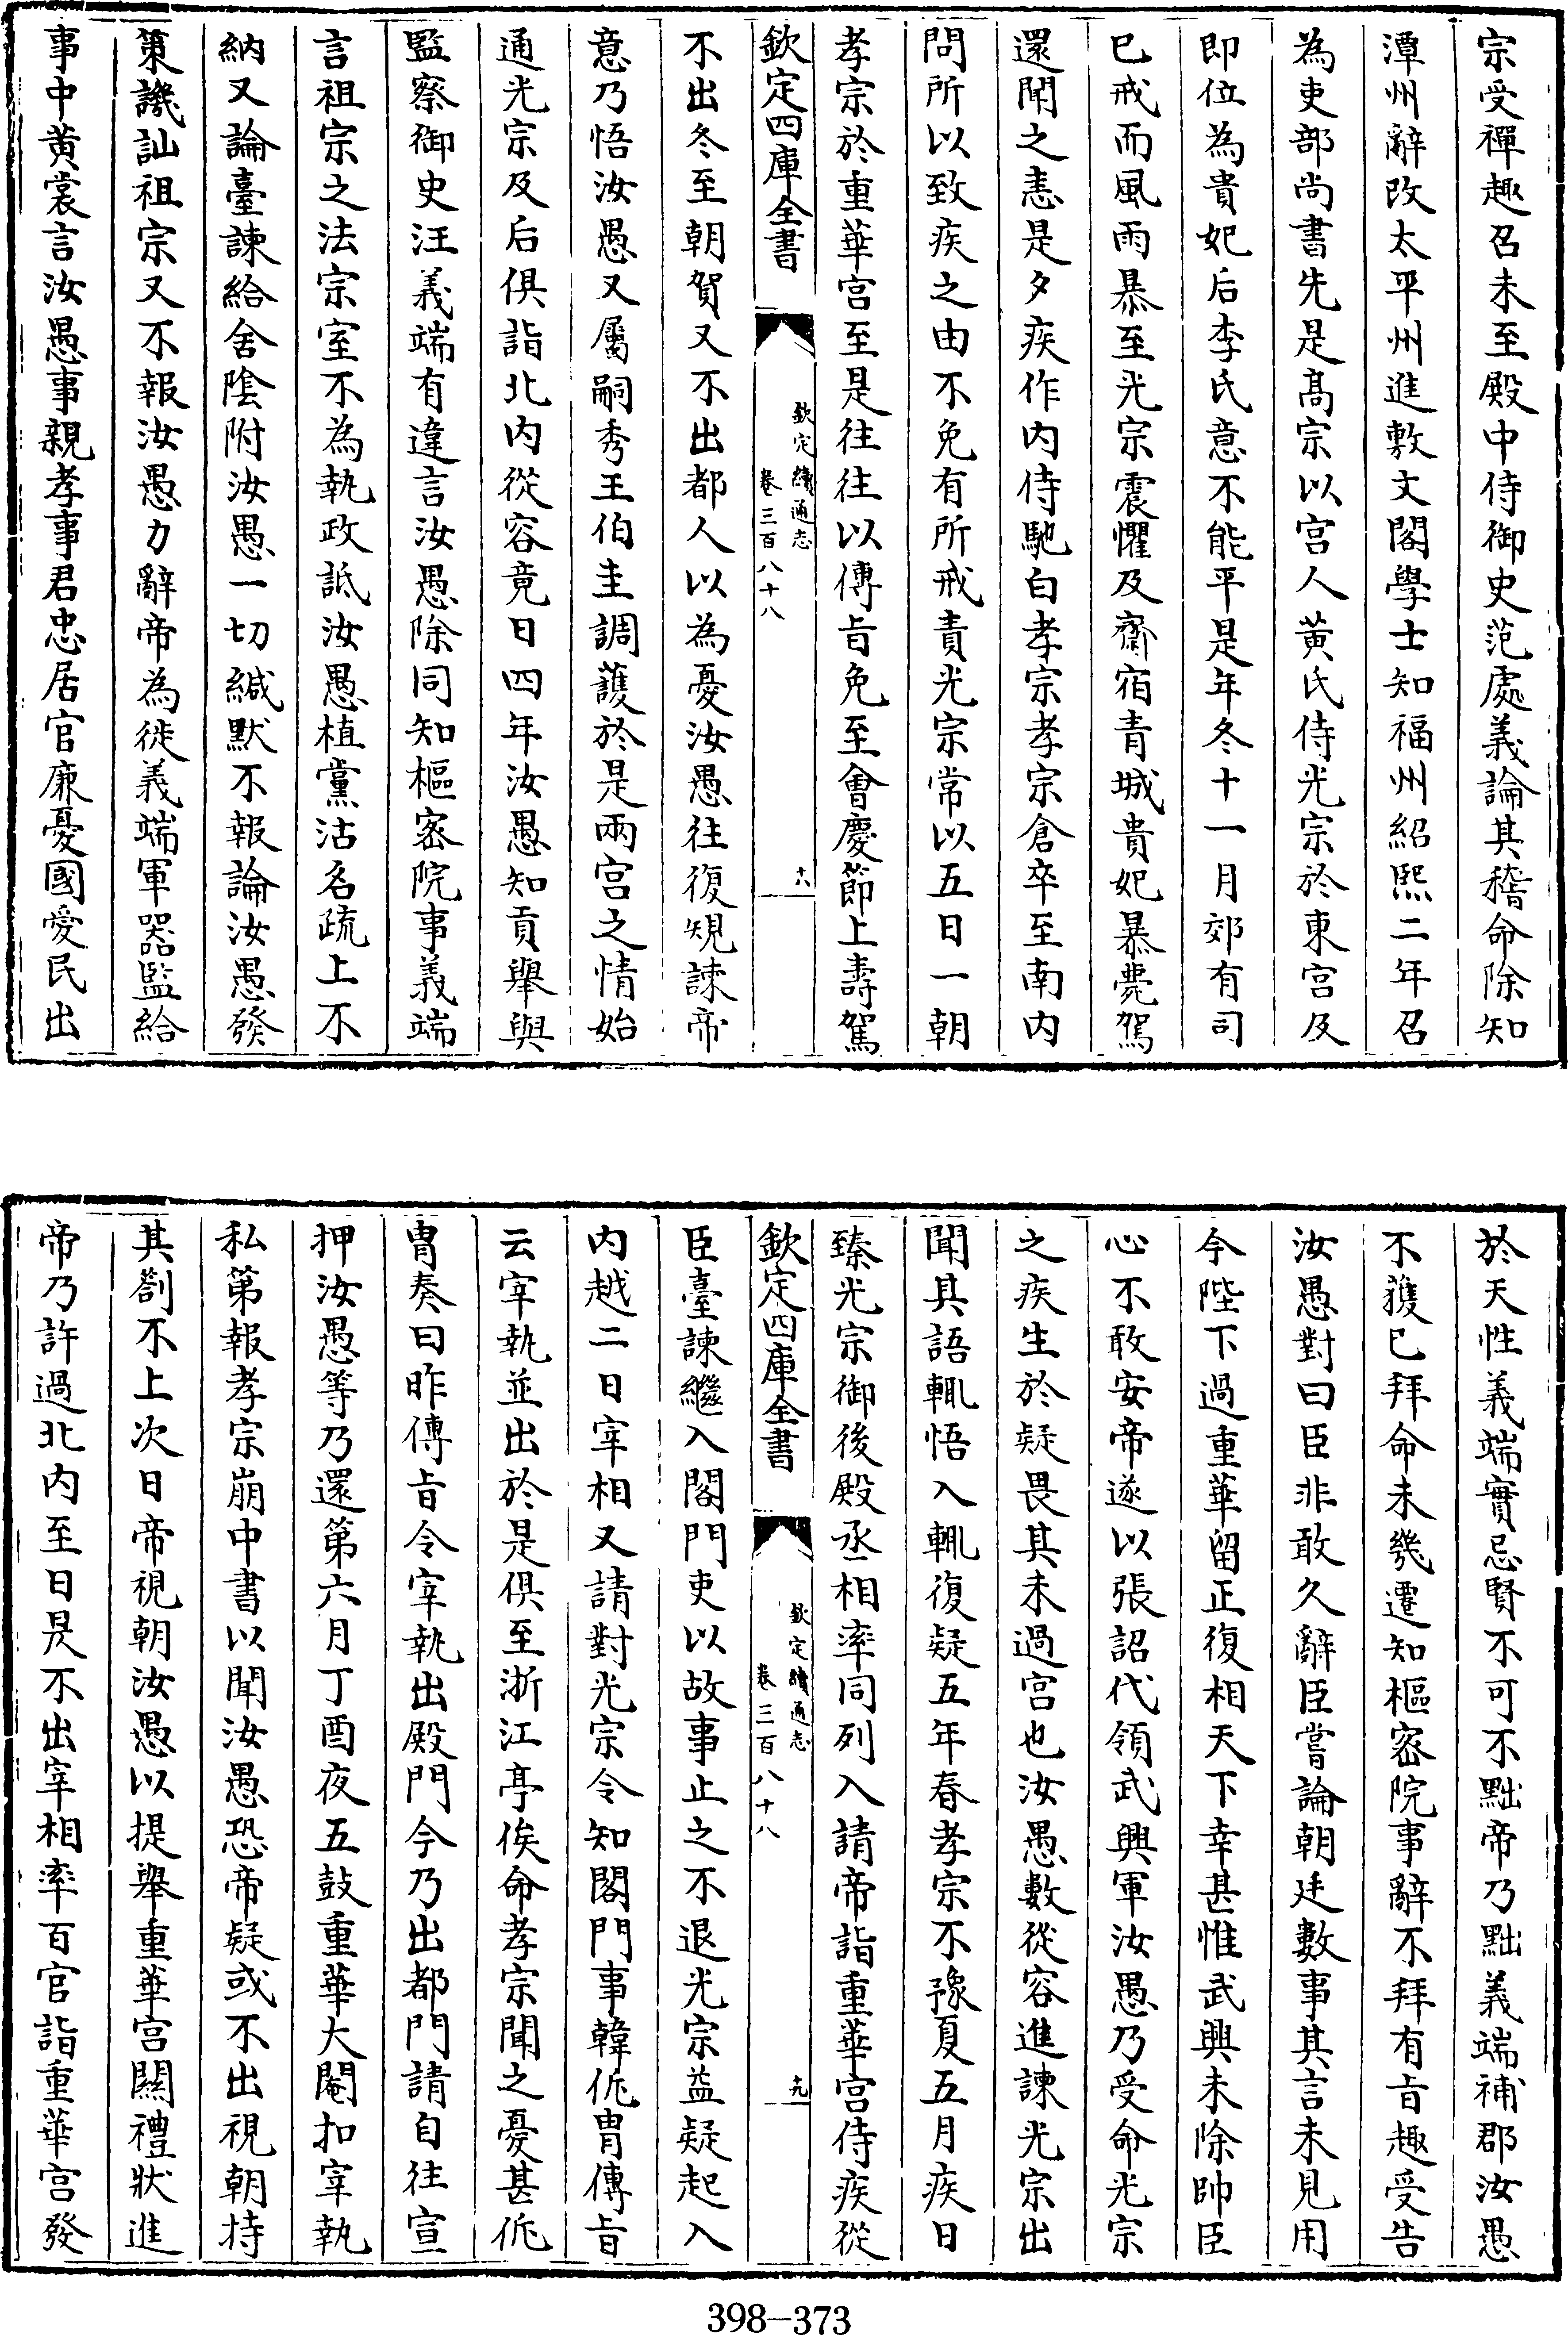 宗受禪趣召未至殿中侍御史范處義論其稽命除知
潭州辭改太平州進敷文閣學士知福州紹熙二年召
為吏部尚書先是髙宗以宫人黄氏侍光宗於東宫及
即位為貴妃后李氏意不能平是年冬十一月郊有司
已戒而風雨暴至光宗震懼及齋宿青城貴妃暴薨駕
還聞之恚是夕疾作内侍馳白孝宗孝宗倉卒至南内
問所以致疾之由不免有所戒責光宗常以五日一朝
孝宗於重華宫至是往往以傳旨免至會慶節上壽駕
欽定四庫全書
欽定續通志
卷三百八十八
十八
不出冬至朝賀又不出都人以為憂汝愚往復規諫帝
意乃悟汝愚又屬嗣秀王伯圭調護於是兩宫之情始
通光宗及后俱詣北内從容竟日四年汝愚知貢舉與
監察御史汪義端有違言汝愚除同知樞密院事義端
言祖宗之法宗室不為執政詆汝愚植黨沽名疏上不
納又論臺諫給舍陰附汝愚一切緘默不報論汝愚發
策譏訕祖宗又不報汝愚力辭帝為徙義端軍器監給
事中黄裳言汝愚事親孝事君忠居官廉憂國愛民出
於天性義端實忌賢不可不黜帝乃黜義端補郡汝愚
不獲已拜命未幾遷知樞密院事辭不拜有旨趣受告
汝愚對曰臣非敢久辭臣嘗論朝廷數事其言未見用
今陛下過重華留正復相天下幸甚惟武興未除帥臣
心不敢安帝遂以張詔代領武興軍汝愚乃受命光宗
之疾生於疑畏其未過宫也汝愚數從容進諫光宗出
聞其語輒悟入輒復疑五年春孝宗不豫夏五月疾日
臻光宗御後殿丞相率同列入請帝詣重華宫侍疾從
欽定四庫全書
欽定續通志
卷三百八十八
十九
臣臺諫繼入閤門吏以故事止之不退光宗益疑起入
内越二日宰相又請對光宗令知閤門事韓侂胄傳旨
云宰執並出於是俱至浙江亭俟命孝宗聞之憂甚侂
胄奏曰昨傳旨令宰執出殿門今乃出都門請自往宣
押汝愚等乃還第六月丁酉夜五鼓重華大閹扣宰執
私第報孝宗崩中書以聞汝愚恐帝疑或不出視朝持
其劄不上次日帝視朝汝愚以提舉重華宫闗禮狀進
帝乃許過北内至日昃不出宰相率百官詣重華宫發
398—373